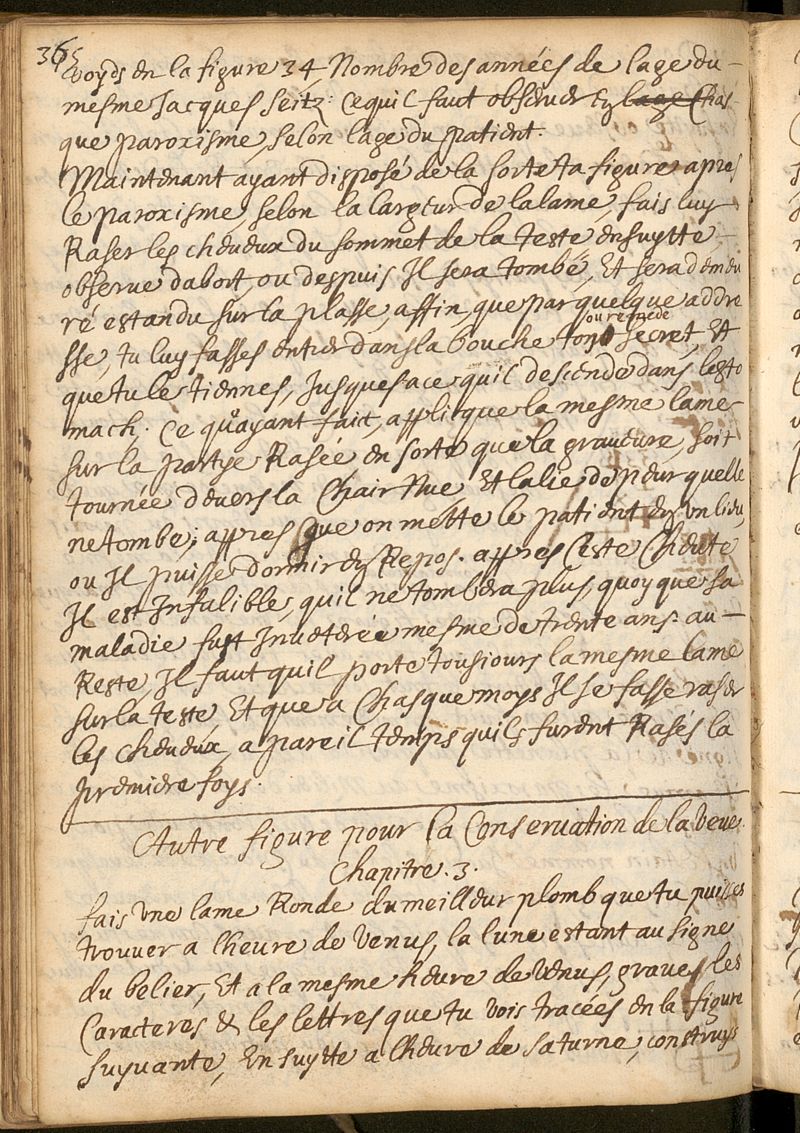 365
voyds en la figure 34 Nombre des années de lage du
mesme Jacques seitz: ce quil faut obseruer Chas-
que paroxisme, selon lage du patient.
Maintenant ayant disposé de la sorte ta figure apres
le paroxisme, selon la largeur de la lame, fais luy
Raser les cheueux du sommet de la teste ensuytte
obserue dabort, ou despuis Il sera tombé, Et sera demeu
ré estandu sur la plasse, affin, que par quelque addre
ou remede
sse, tu luy fasses entrer dans la bouche ton secret, Et
que tu le tiennes, Jusques a ce quil descende dans lesto
mach. Ce qu'ayant fait, applicque la mesme lame
sur la partye Rasée en sorte que la graueure, soit
tournée deuers la Chair Nue, Et la lie de peur quelle
ne tombe; appres que on mette le patient en vn lieu,
ou Il puisse dormir en Repos. appres ceste Cheute
Il est Infalible, quil ne tombera plus, quoy que sa
maladie fust Inueterée mesme de trente ans. au
Reste, Il faut quil porte tousiours la mesme lame
sur la teste Et que a Chasque moys Il se fasse raser
les cheueux, a pareil temps quils furent Rasés la
premiere foys.
Autre figure pour la Conseruation de la Veue.
Chapitre. 3.
fais Vne lame Ronde du meilleur plomb que tu puisses
trouuer a lheure de Venus, la lune estant au signe
du belier, Et a la mesme heure de Venus, graues les
Caracteres & les lettres que tu vois tracées en la figure
suyuante, En suytte a lheure de saturne, construys